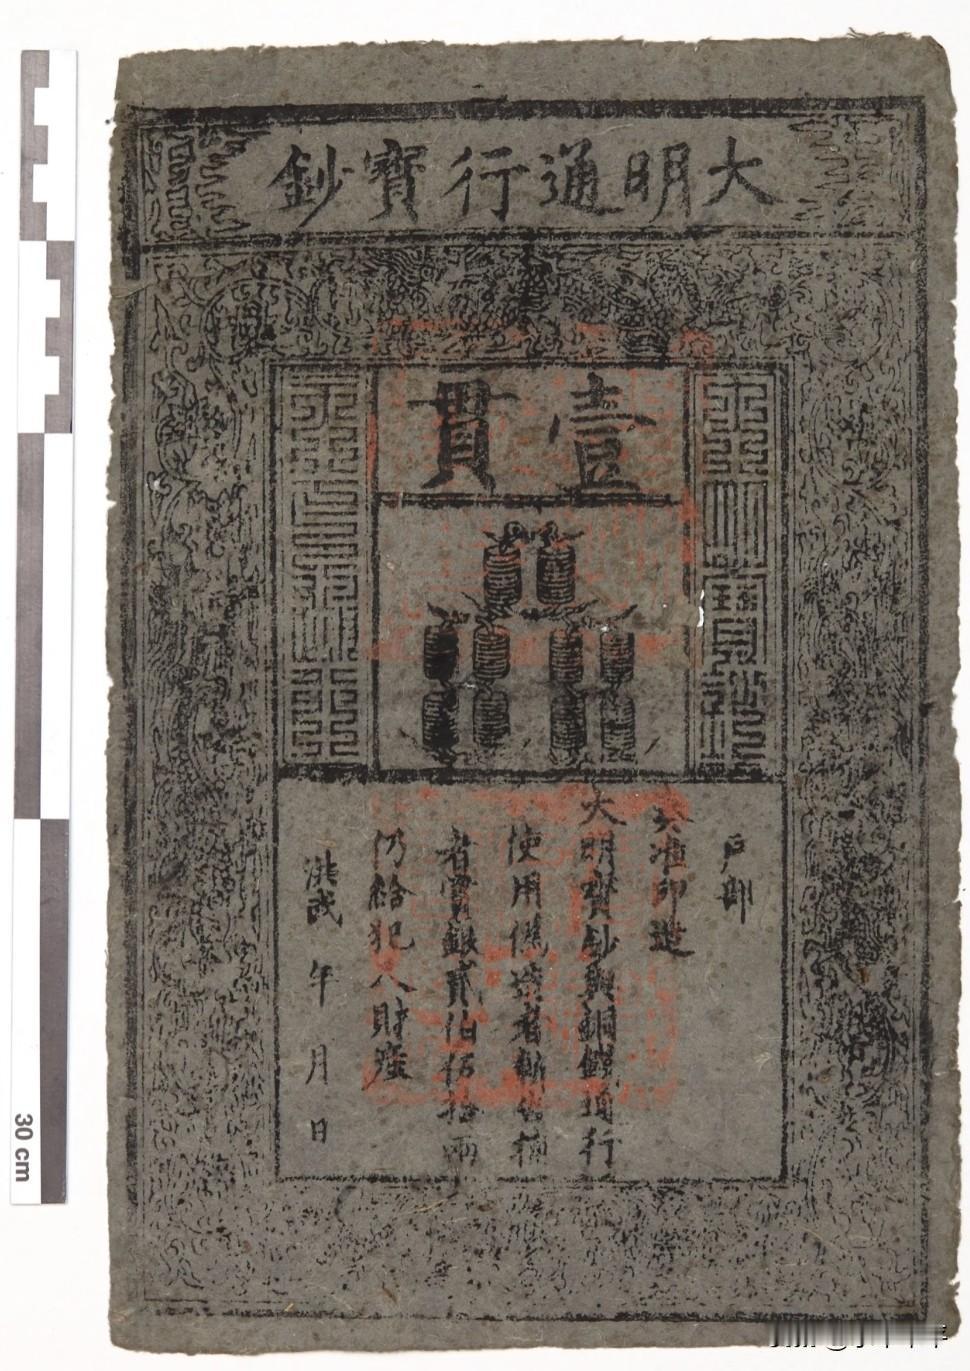 大明通行寶鈔
壹貫
大明寶鈔
天下通行
戶部
奏准印造
大明寶鈔與銅錢通行
使用偽造者斬告捕
者賞銀貳伯伍拾兩
仍給犯人財產
洪武 年 月 日
30 cm